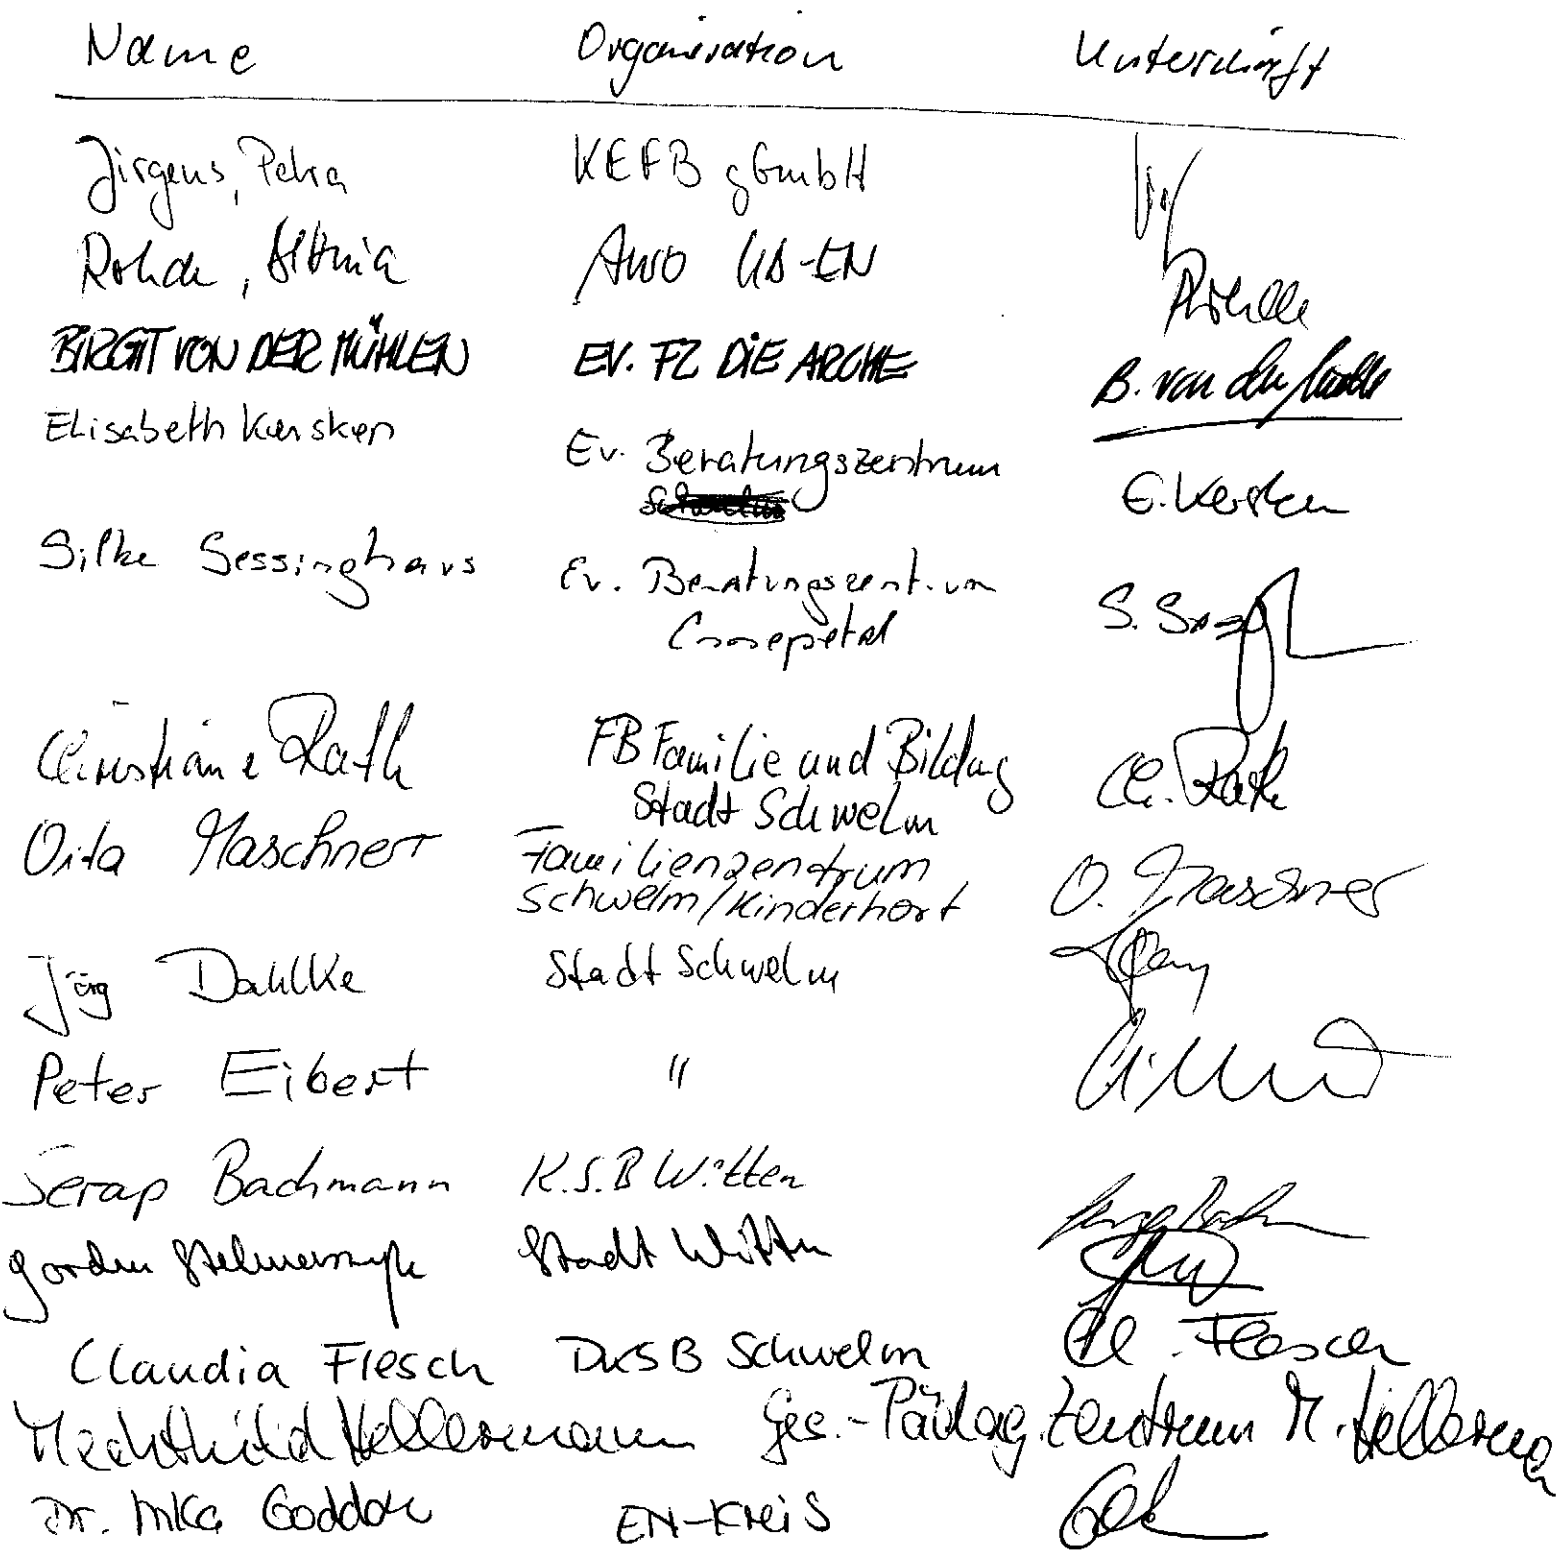 Name Organisation Unterschrift
Jürgens, Petra KEFB gGmbH
Rohde, AWO UB-EN Rohde
BIRGIT VON DER MÜHLEN EV. FZ DIE ARCHE B. von der Mühlen
Elisabeth Kersken Ev. Beratungszentrum E. Kersken
Silke Sessinghaus Ev. Beratungszentrum S.
Ennepetal
Christiane Rath FB Familie und Bildung Ch. Rath
Stadt Schwelm
Oita Maschner Familienzentrum O. Maschner
Schwelm/Kinderhort
Jörg Dahlke Stadt Schwelm
Peter Eibert "
Serap Bachmann K.S.B Witten Serap Bachm
Stadt Witten
Claudia Flesch DKSB Schwelm Cl. Flesch
Mechthild Hellermann Ges.-Pädag. Zentrum M. Hellermann
Dr. EN-Kreis